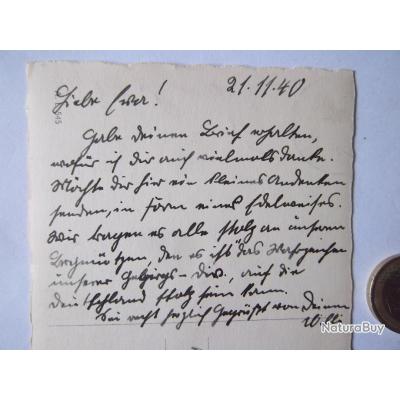 21.11.40
Liebe Ewa!
Habe deinen Brief erhalten,
wofür ich dir auch vielmals danke.
Möchte dir hier ein kleines Andenken
senden, in Form eines Edelweißes.
Wir tragen es alle stolz an unseren
Bergmützen, den es ist das Wahrzeichen
unserer Gebirgs-Div., auf die
Deutschland stolz sein kann.
Sei recht herzlich Gegrüßt von Deinem
Willi
NaturaBuy